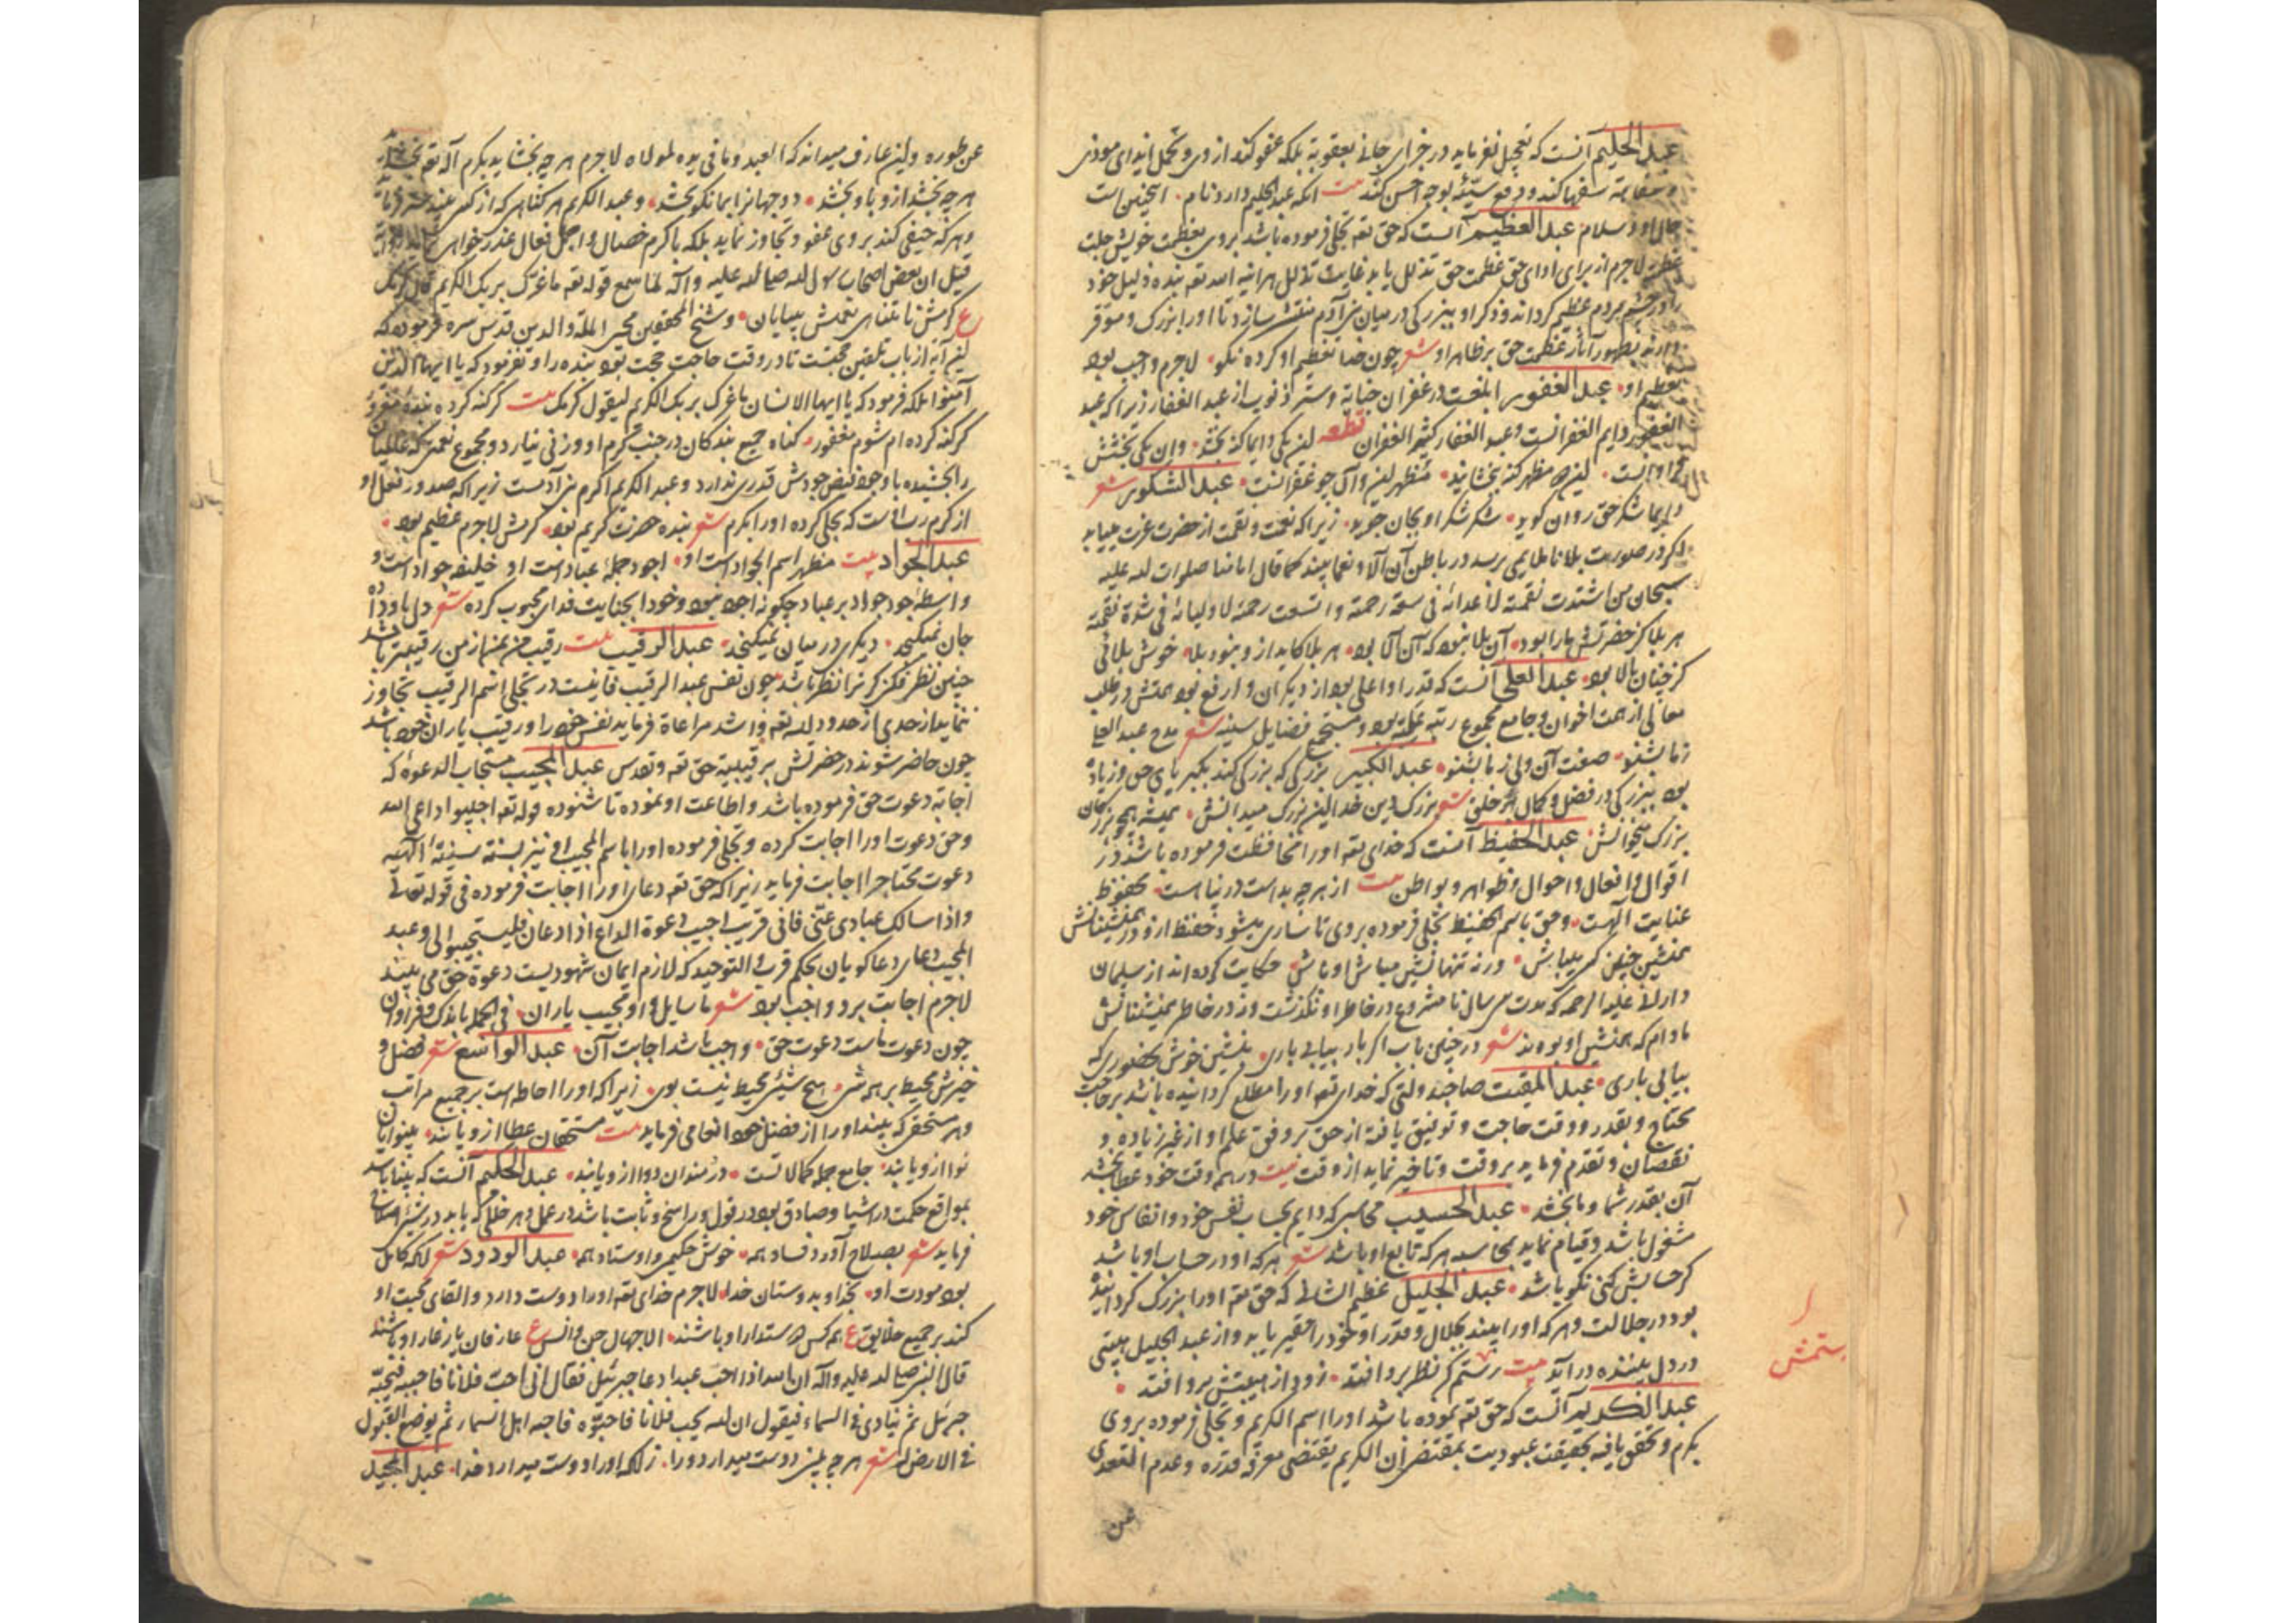 عبد الحلیم آنست که تعجیل نفرماید در جزای جانی بعقوبة بلکه عفو کند از وی و تحمل ایذای موذی
و سفاهة سفها کند و دفع سیّئه بوجه احسن کند بیت آنکه عبد الحلیم دارد نام اینچنین است
حال او و سلام عبد العظیم آنست که حق تعه تجلی فرموده باشد بروی بعظمت خویش جلت
عظمته لاجرم از برای ادای حق عظمت حق تذلل یابد غایت تذلل هرآینه الله تعه بنده ذلیل خود
را در چشم مردم عظیم گرداند و ذکر او ببزرگی در میان بنی آدم منتشر سازد تا او را بزرگ و موقر
دارند بظهور آثار عظمت حق بر ظاهر او شعر چون خدا تعظیم او کرده نکو لاجرم واجب بود
تعظیم او عبد الغفور ابلغست در غفران جنایة و ستر ذنوب از عبد الغفار زیرا که عبد
الغفور دایم الغفرانست و عبد الغفار کثیر الغفران قطعه این یکی دایما گنه بخشد وان یکی بخشش
فراوانست این مظهر گنه بخشاید مظهر این و آن چو غفرانست عبد الشکور شعر
دایما شکر حق روان گوید شکر شکر او بجان جوید زیرا که نعمت و نقمت از حضرت عزت میباید
اگر در صورت بلا ناملایمی برسد در باطن آن آلا و نعما بیند کما قال امامنا صلوات الله علیه
سبحان من اشتدت نقمته لاعدائه فی سعة رحمته و اتسعت رحمته لاولیائه فی شدة نقمته
هر بلا کز حضرتش ما را بود آن بلا نبود که آن آلا بود هر بلا کاید ازو نبود بلا خوش بلائی
کز چنان بالا بود عبد العلی آنست که قدر او اعلی بود از دیگران و ارفع بود همتش در طلب
معالی از همت اخوان و جامع مجموع رتبه علیّه بود و مستجمع فضایل سنیه شعر مدح عبد العلی
زما بشنو صفت آن ولی زما بشنو عبد الکبیر بزرگی که بزرگی کند بکبریای حق و زیاده
بود ببزرگی در فضل و کمال بر خلق شعر بزرگ دین خدا این بزرگ میدانش همیشه همچو بزرگان
بزرگ میخوانش عبد الحفیظ آنست که خدای تعه او را محافظت فرموده باشد در
اقوال و افعال و احوال و ظواهر و بواطن بیت از هر چه بداست در پناه است محفوظ
عنایت الهست و حق باسم الحفیظ تجلی فرموده بروی تا ساری میشود حفظ ازو در همنشینانش
همنشین چنین کسی میباش ورنه تنها نشین میباش او باش حکایت کرده اند از سلیمان
دارانی علیه الرحمه که مدت سی سال نامشروع در خاطر او نگذشت و نه در خاطر همنشینانش
مادام که همنشین او بودند شعر در چنین باب اگر باد بیابی باری بنشین خوش بحضوری که
بیابی باری عبد المقیت صاحبدولتی که خدای تعه او را مطلع گردانیده باشد بر حاجت
محتاج و بقدر و وقت حاجت و توفیق یافته از حق بر وفق علم او از غیر زیاده و
نقصان و تقدم فرماید بر وقت و تاخیر نماید از وقت بیت در همه وقت خود عطا بخشد
آن بقدر شما و ما بخشد عبد الحسیب محاسبی که دایم بحساب نفس خود و انفاس خود
مشغول باشد و قیام نماید بمحاسبه هر که تابع او باشد شعر هر که او در حساب او باشد
گر حسابش کنی نکو باشد عبد الجلیل عظیم الشانی که حق تعه او را بزرگ گردانیده
بود در جلالت و هر که او را بیند بجلال و قدر او خود را حقیر یابد و از عبد الجلیل هیبتی
در دل بیننده در آید بیت رستم گر نظر برو افتد زود از هیبتش برو افتد
عبد الکریم آنست که حق تعه نموده باشد او را اسم الکریم و تجلی فرموده بروی
بکرم و تحقق یافته بحقیقت عبودیت بمقتضی ان الکریم یقتضی معرفة قدره و عدم التعدی
عن
عن طوره و این عارف میداند که العبد و ما فی یده لمولاه لاجرم هر چه بخشاید بکرم آله تعه بخشد
هر چه بخشد ازو باو بخشد دو جهانرا بما نکو بخشد و عبد الکریم هر گناهی که از کسی بیند ستر فرماید
و هر که جنفی کند بروی عفو و تجاوز نماید بلکه باکرم خصال و اجمل فعال عذر خواهی نماید
قیل ان بعض اصحاب رسول الله صلی الله علیه و آله لما سمع قوله تعه ما غرک بربک الکریم قال کرمک
ع کرمش نامتناهی نعمش بیپایان و شیخ المحققین محیی الملة والدین قدس سره فرموده که
این آیه از باب تلقین حجتست تا در وقت حاجت حجت بود بنده را و نفرمود که یا ایها الذین
آمنوا بلکه فرمود که یا ایها الانسان ما غرک بربک الکریم لیقول کرمک بیت گر گنه کرده بنده مغرور
گر گنه کرده ام شوم مغفور گناه جمیع بندگان در جنب کرم او وزنی نیارد و مجموع نعمتی که عالمیان
را بخشیده باوجود فیض جودش قدری ندارد و عبد الکریم اکرم بنی آدمست زیرا که صدور فعل او
از کرم ربانیست که تجلی کرده او را بکرم شعر بنده حضرت کریم بود کرمش لاجرم عظیم بود
عبد الجواد بیت مظهر اسم الجواد است او اجود جملهٔ عباد است او خلیفه جواد است و
واسطهٔ جود جواد بر عباد چگونه اجود نبود و خود را بجنایت فدای محبوب کرده شعر دل باو داده
جان نمیگنجد دیگری در میان نمیگنجد عبد الرقیب بیت رقیب من بمن از من رقیبتر باشد
چنین نظر فکن گر ترا نظر باشد چون نفس عبد الرقیب فانیست در تجلی اسم الرقیب تجاوز
ننماید از حدی از حدود الله تعه و اشد مراعاة فرماید نفس خود را و رقیب یاران خود باشد
چون حاضر شوند در حضرتش برقیبیة حق تعه و تقدس عبد المجیب مستجاب الدعوة که
اجابة دعوت حق فرموده باشد و اطاعت او نموده تا شنوده قوله تعه اجیبوا داعی الله
و حق دعوت او را اجابت کرده و تجلی فرموده او را باسم المجیب او نیز بسنّة سنیّة الهیه
دعوت محتاج را اجابت فرماید زیرا که حق تعه دعای او را اجابت فرموده فی قوله تعالی
و اذا سالک عبادی عنّی فانی قریب اجیب دعوة الداع اذا دعان فلیستجیبوا لی و عبد
المجیب دعای دعاگویان بحکم قرب و التوحید که لازم ایمان شهودیست دعوة حق می بیند
لاجرم اجابت برو واجب بود شعر ما سایل و او مجیب یاران فی الجمله باندک و فراوان
چون دعوت ماست دعوت حق واجب باشد اجابت آن عبد الواسع شعر فضل و
خیرش محیط بر همه شی هیچ شیئی محیط نیست بوی زیرا که او را احاطه است بر جمیع مراتب
و هر مستحقی که بیند او را از فضل خود انعامی فرماید بیت مستحقان عطا ازو یابند بینوایان
نوا ازو یابند جامع جمله کمالاتست دردمندان دوا ازو یابند عبد الحکیم آنست که بینا باشد
بمواقع حکمت در اشیا و صادق بود در قول و راسخ و ثابت باشد در عمل و هر خللی که یابد در شیئی اصلاحش
فرماید شعر بصلاح آورد فساد همه خوش حکیمی و اوستاد همه عبد الودود شعر آنکه کامل
بود مودت او بخدا و بدوستان خدا لاجرم خدای تعه او را دوست دارد و القای محبت او
کند بر جمیع خلایق ع همه کس دوستدار او باشند الا جهال جن و انس ع عارفان یار غار او باشند
قال النبی صلی الله علیه و آله ان الله اذا احب عبدا دعا جبرئیل فقال انی احب فلانا فاحببه فیحبّه
جبرئیل ثم ینادی فی السماء فیقول ان الله یحب فلانا فاحبّوه فاحبه اهل السماء ثم یوضع القبول
فی الارض له شعر هر چه بینی دوست میدارد ورا زانکه او را دوست میدارد خدا عبد المجید